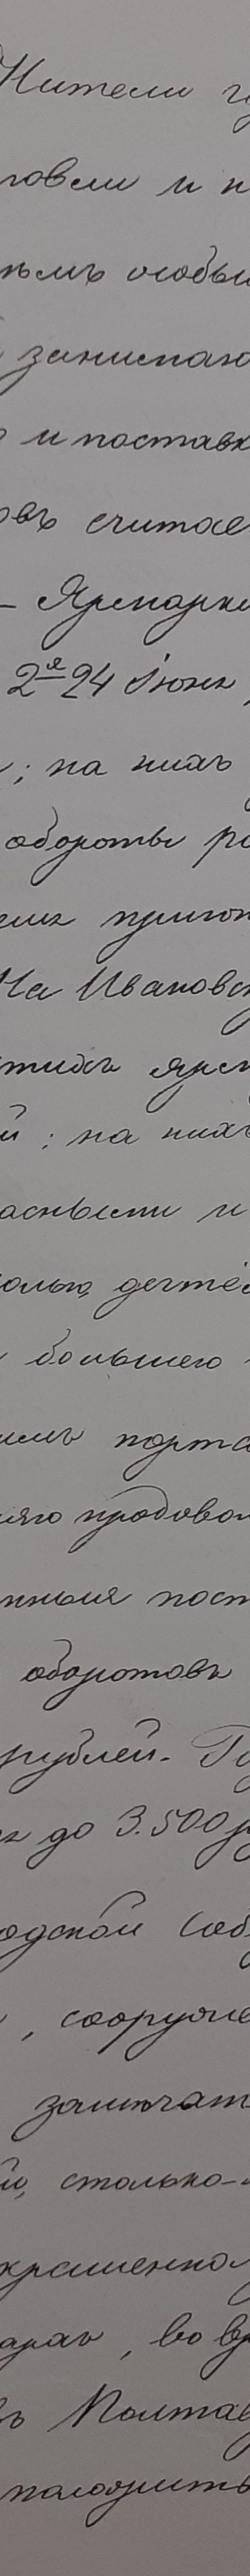 Жители го
говли и п
нымъ особы
занимаю
и поставк
овъ считае
– Ярмарки
2я 24 Июня,
; на нихъ
обороты ро
ших пригон
На Ивановск
этихъ ярм
й; на нихъ
расными и
солью, дегтё
большего
шимъ порто
няго продовол
нныя пост
оборотовъ
рублей. Го
их до 3.500 р
одской Соб
, сооруже
замѣчат
ю, столько-
крашенно
арах, во вр
въ Полтав
положить